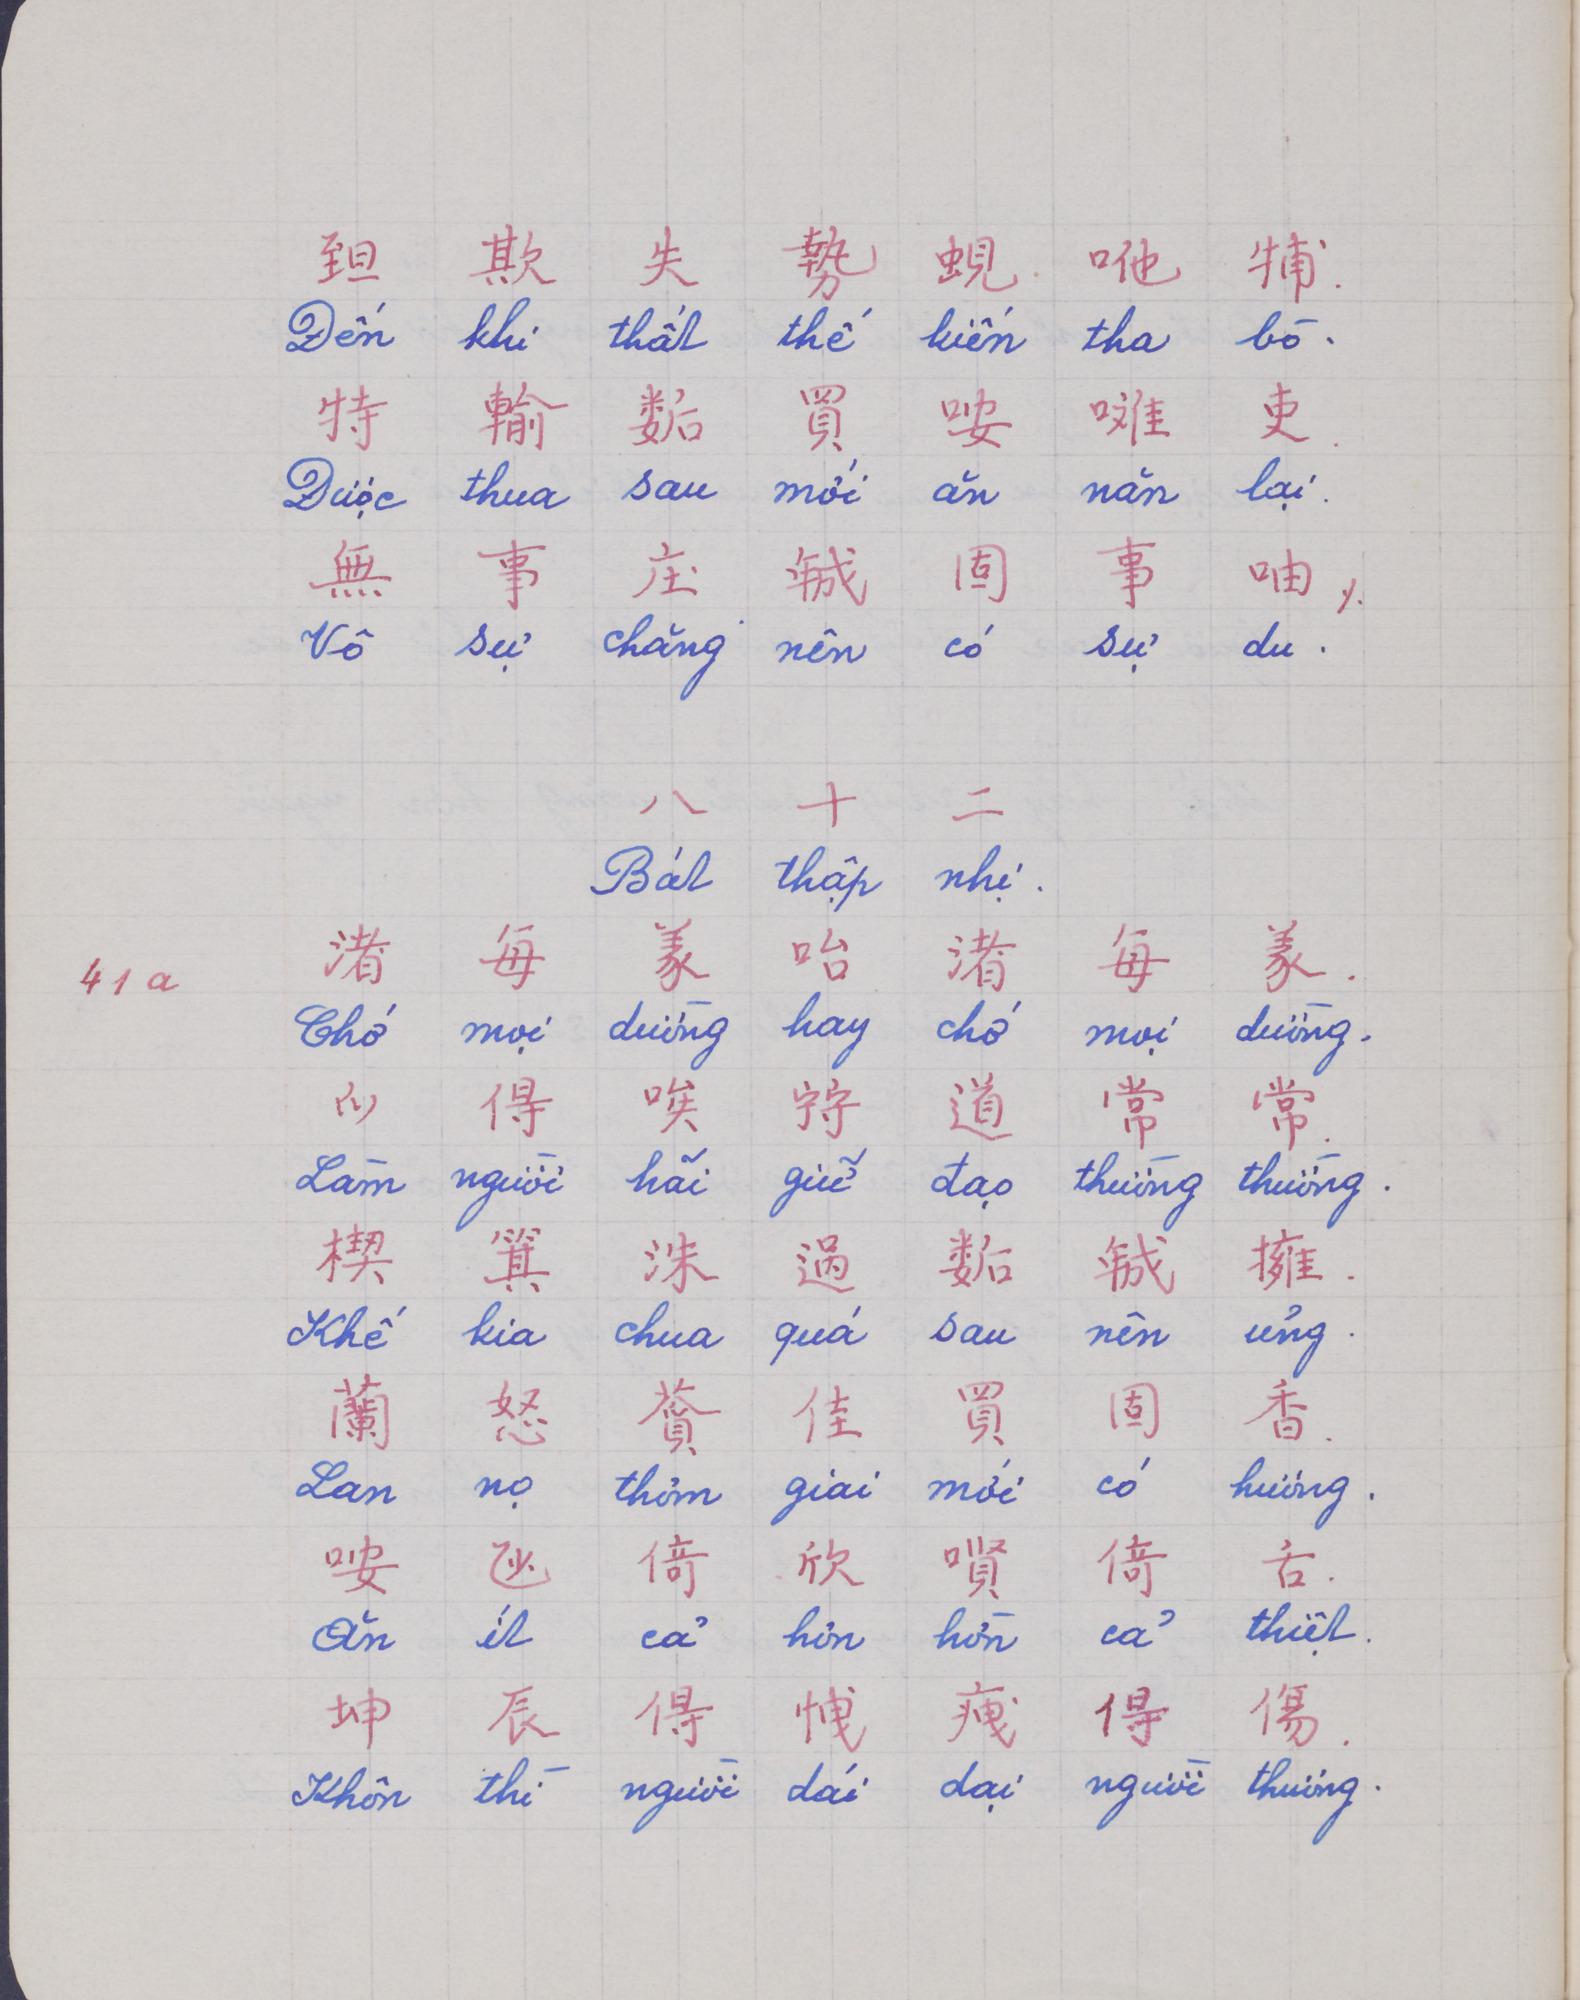 𦤾 欺 失 勢 蜆 咃 𤙭.
Đến khi thất thế kiến tha bò.
特 輸 𡢐 買 咹 吏.
Được thua sau mới ăn năn lại.
無 事 庄 𢧚 固 事
Vô sự chăng nên có sự du.
八 十 二
Bát thập nhị.
41a
渚 每 羕 咍 渚 每 羕.
Chớ mọi dường hay chớ mọi dường.
𠊛 唉 𡨹 道 常 常.
Làm người hãi giữ đạo thường thường.
楔 箕 洙 過 𡢐 𢧚 擁.
Khế kia chua quá sau nên ủng.
蘭 怒 佳 買 固 香.
Lan nọ thơm giai mới có hương.
咹 𠃣 倚 欣 倚 舌.
Ăn ít cả hơn hờn cả thiệt.
坤 辰 𠊛 𠊛 傷.
Khôn thì người dái dại người thương.